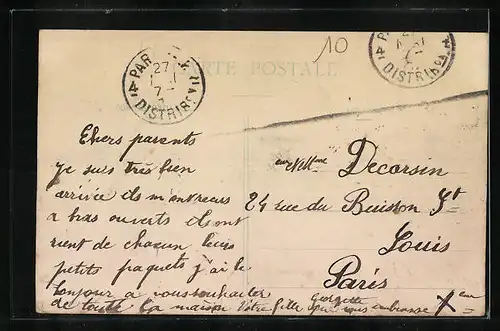 10
CARTE POSTALE
PARIS
27
7-
DISTRIB
PA
DISTRIB
Chers parents
je suis très bien
arrivée ils m'ont recus
a bras ouverts ils ont
rient de chacun leurs
petits paquets j'ai le
bonjour a vous souhaiter
de toute la maison Votre fille Georgette qui vous embrasse
Decorsin
24 rue du Buisson St
Louis
Paris
Xeme